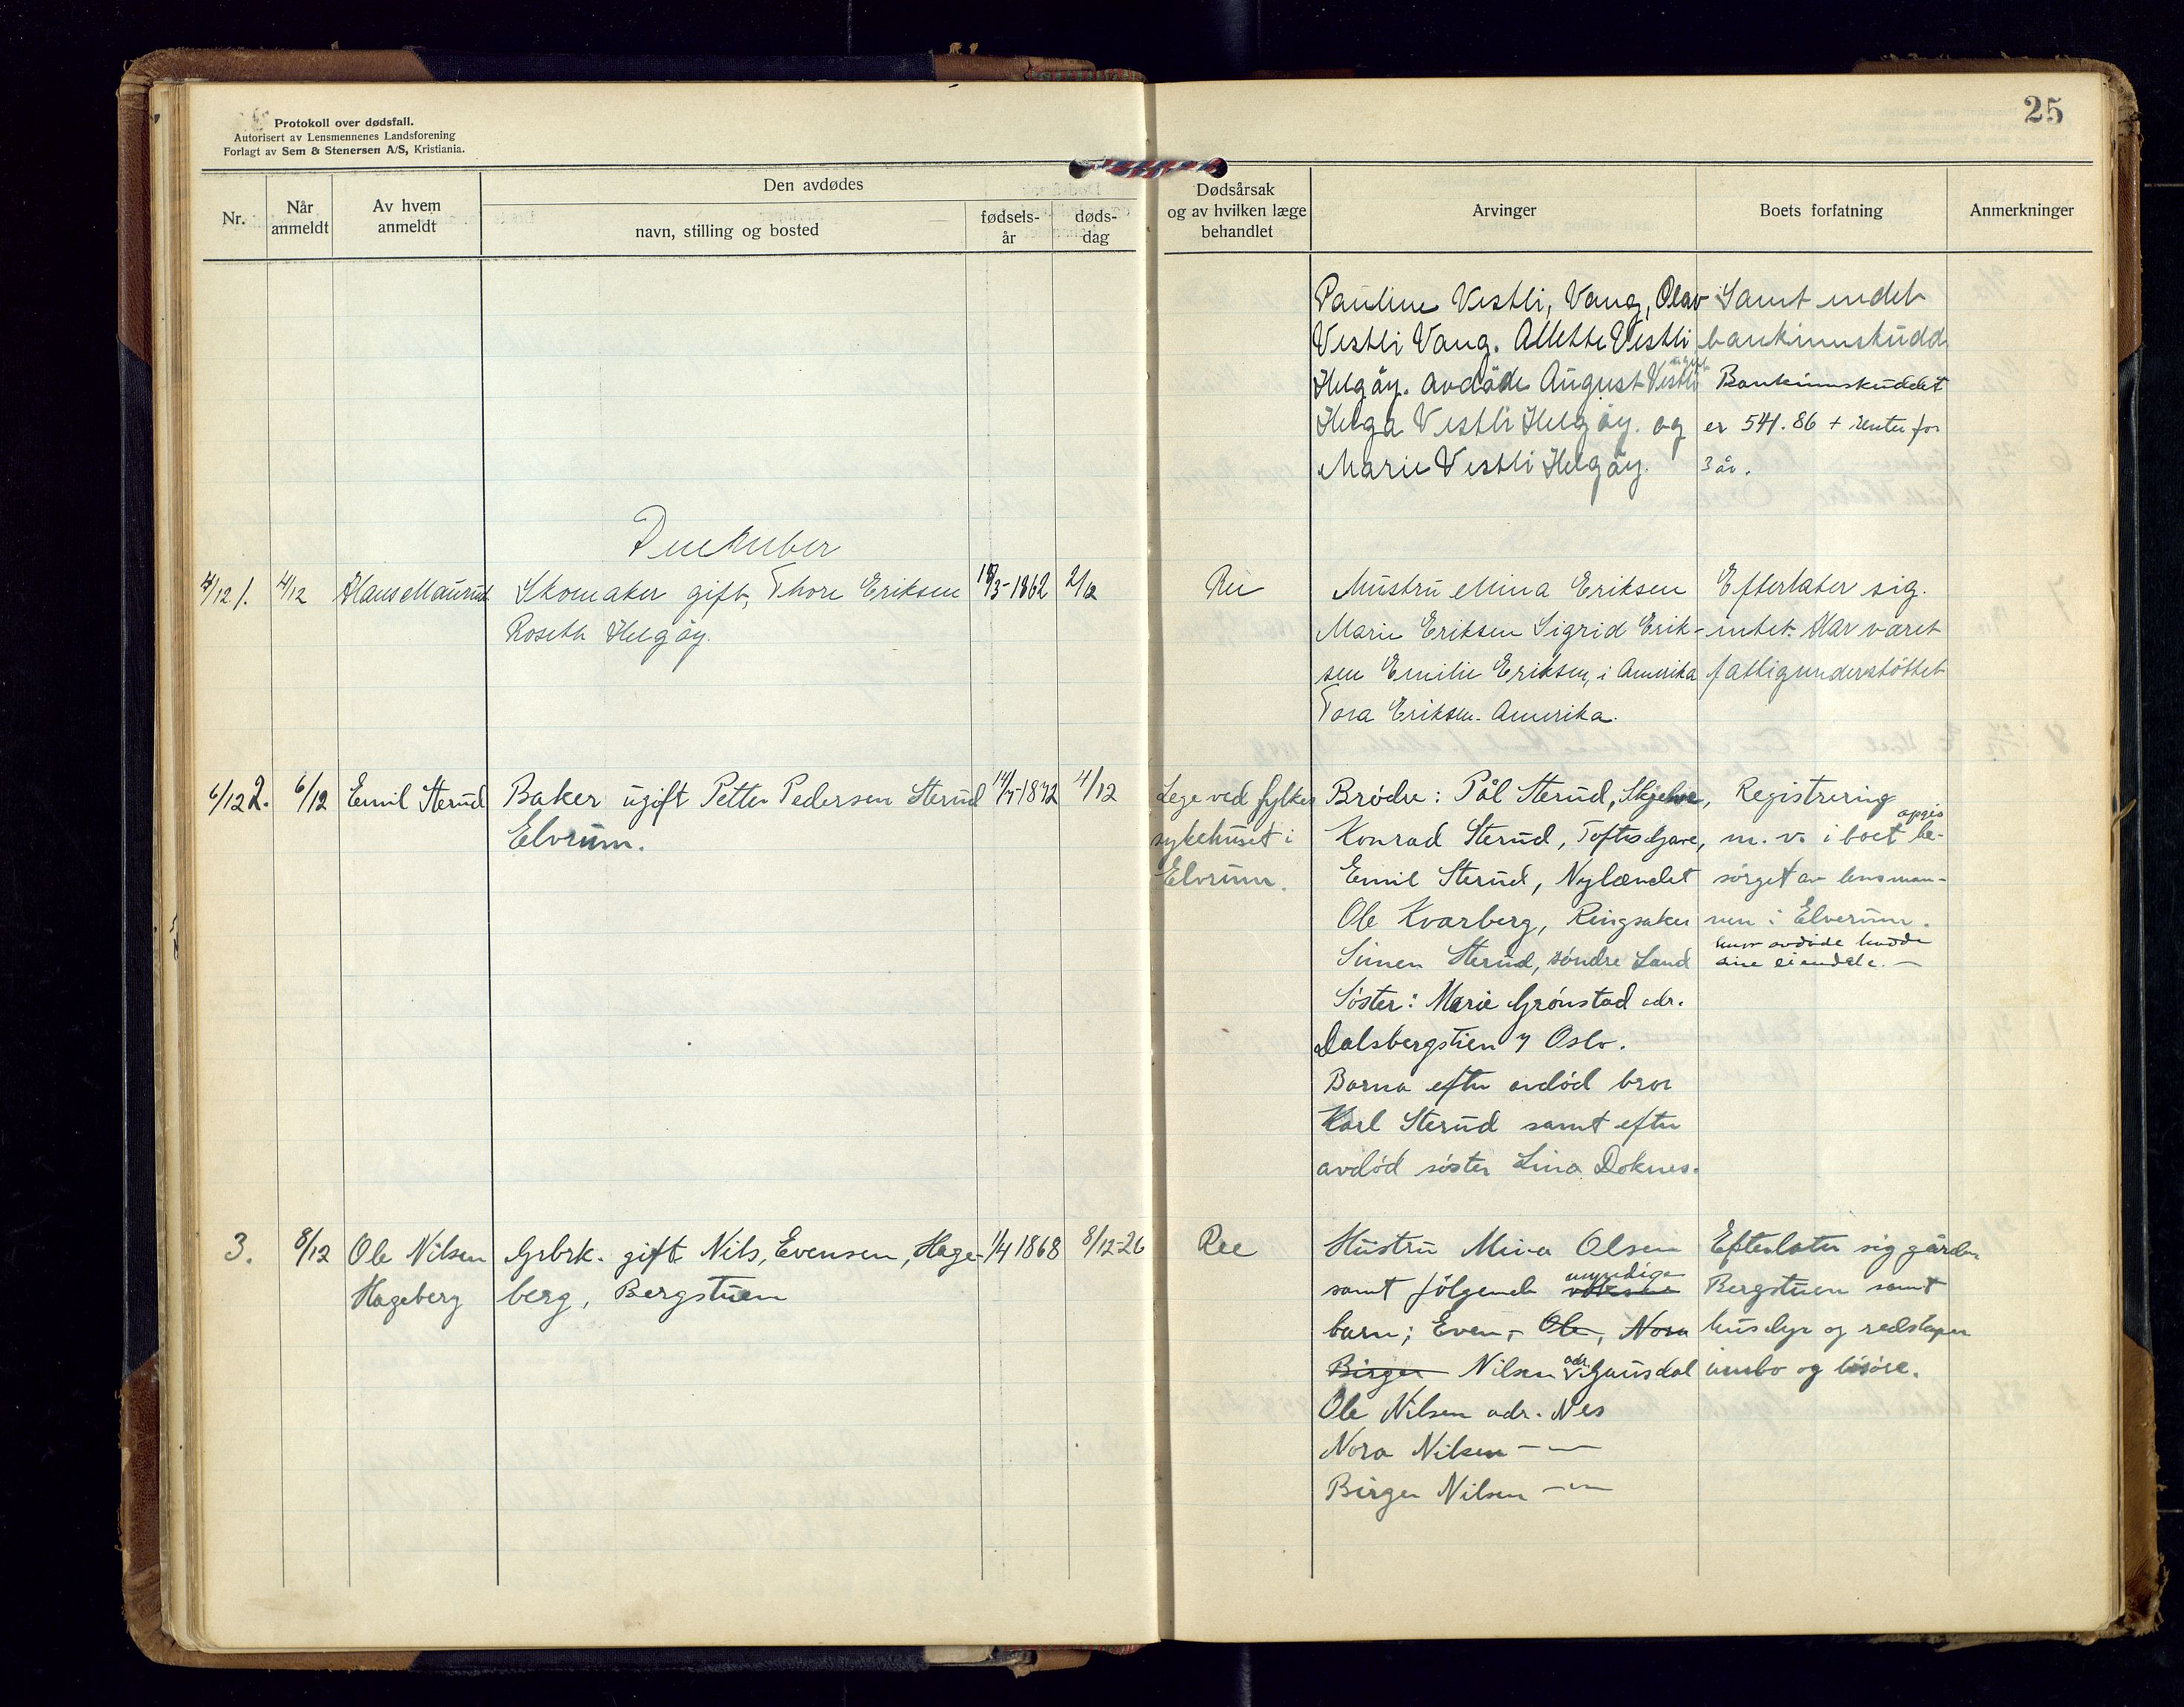 Protokoll over dødsfall.
Autorisert av Lensmennenes Landsforening
Forlagt av Sem & Stenersen A/S, Kristiania.
25
Nr.
Når anmeldt
Av hvem anmeldt
Den avdødes
navn, stilling og bosted
fødsels-år
døds-dag
Dødsårsak og av hvilken læge behandlet
Arvinger
Boets forfatning
Anmerkninger
Pauline Vestli, Vang, Olav
Vestli Vang. Allette Vestli
Helgøy. Avdøde August Vestli
Helga Vestli Helgøy. og
Marie Vestli Helgøy.
Samt endel
bankinnskudd
Bankinnskuddet
er 541.86 + renter for
3 år.
December
4/12 1.
4/12
Hans Maurud
Skomaker gift, Thore Eriksen
Roseth Helgøy.
/3-1862
2/12
Ree
Hustru Mina Eriksen
Marie Eriksen Sigrid Erik-
sen Emilie Eriksen, i Amerika
Tora Eriksen. Amerika.
Efterlater sig.
intet. Har været
fattigunderstøttet
6/12 2.
6/12
Emil Sterud
Baker ugift Petter Pedersen Sterud
Elvrum.
14/5-1872
4/12
Lege ved fylkes
sykehuset i
Elvrum.
Brødre: Pål Sterud, Skjelve,
Konrad Sterud, Toftes Gave,
Emil Sterud, Nylændet
Ole Kvarberg, Ringsaker
Simen Sterud, søndre Land
Søster: Marie Grønstad adr.
Dalsbergstien 7 Oslo.
Barna efter avdød bror
Karl Sterud samt efter
avdød søster Lina Doknes.
Registrering
m. v. i boet opgis be-
sørget av lensman-
nen i Elverum.
hvor avdøde hadde
sine eiendele. —
3.
8/12
Ole Nilsen
Hageberg
Grbrk. gift Nils, Evensen, Hage-
berg, Bergstuen
1/4 1868
8/12-26
Ree
Hustru Mina Olsen
samt følgende voksne myndige
barn; Even, Ole, Nora
Birger Nilsen adr. V. Gausdal
Ole Nilsen adr. Nes
Nora Nilsen — " —
Birger Nilsen — " —
Efterlater sig gården
Bergstuen samt
husdyr og redskaper
innbo og løsøre.